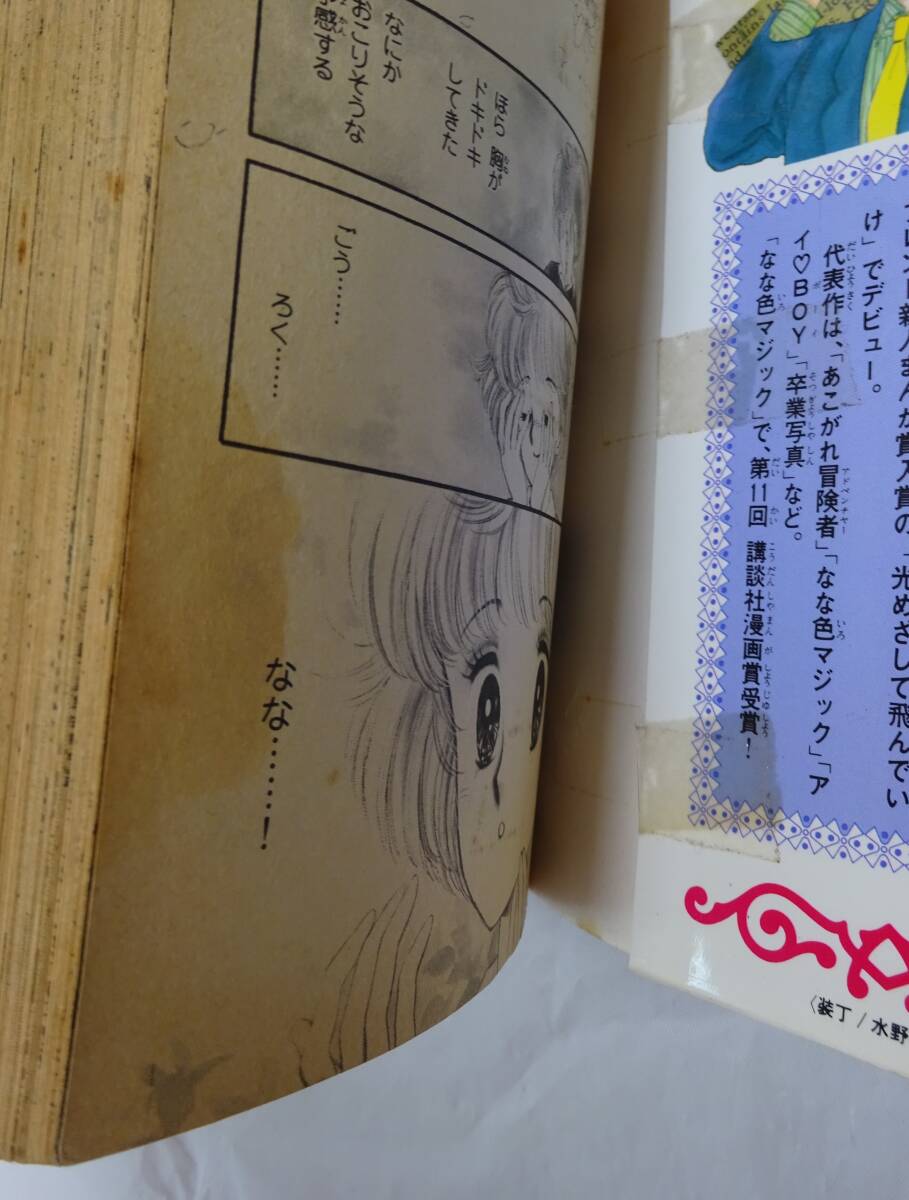 ほら 胸が
ドキドキ
してきた
なにか
おこりそうな
感する
ごう……
ろく……
なな………！
新人まんが賞入賞の「光めざして飛んでい
け」でデビュー。
代表作は、「あこがれ冒険者」「なな色マジック」「ア
イ♡BOY」「卒業写真」など。
「なな色マジック」で、第11回 講談社漫画賞受賞！
〈装丁/水野